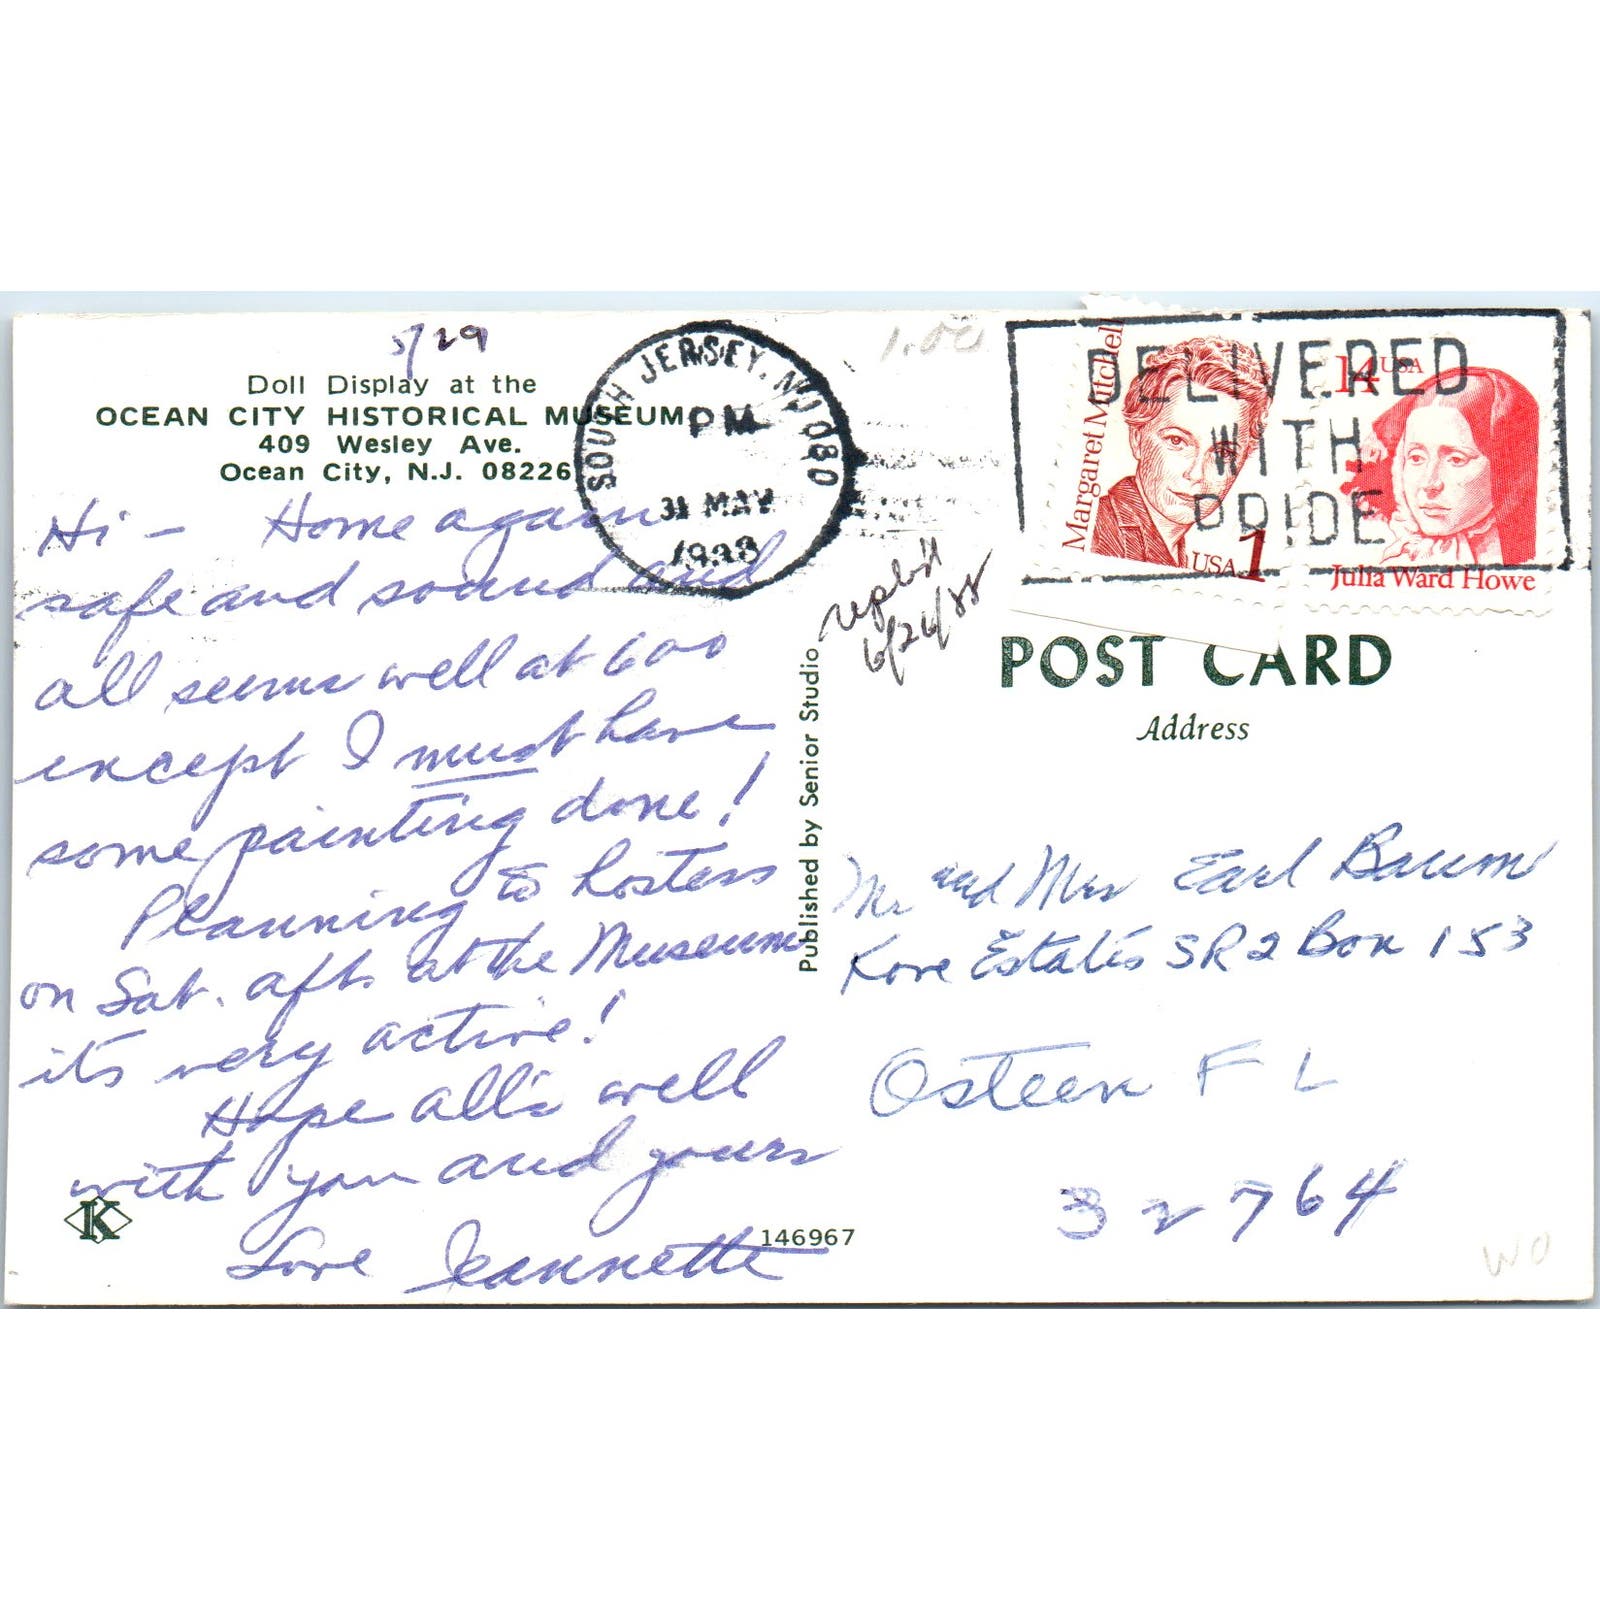 5/29
Doll Display at the
OCEAN CITY HISTORICAL MUSEUM
409 Wesley Ave.
Ocean City, N.J. 08226
Hi - Home again
safe and sound and
all seems well at 600
except I must have
some painting done!
Planning to hostess
on Sat. aft. at the Museum
it's very active!
Hope all's well
with you and yours
Love Jeannette
K
146967
Published by Senior Studio
SOUTH JERSEY, NJ 080
PM
31 MAY
1988
1.00
6/26/88
DELIVERED
WITH
PRIDE
Margaret Mitchell
USA 1
14 USA
Julia Ward Howe
POST CARD
Address
Mr and Mrs Earl Baum
Kove Estates SR2 Box 153
Osteen FL
32764
WO